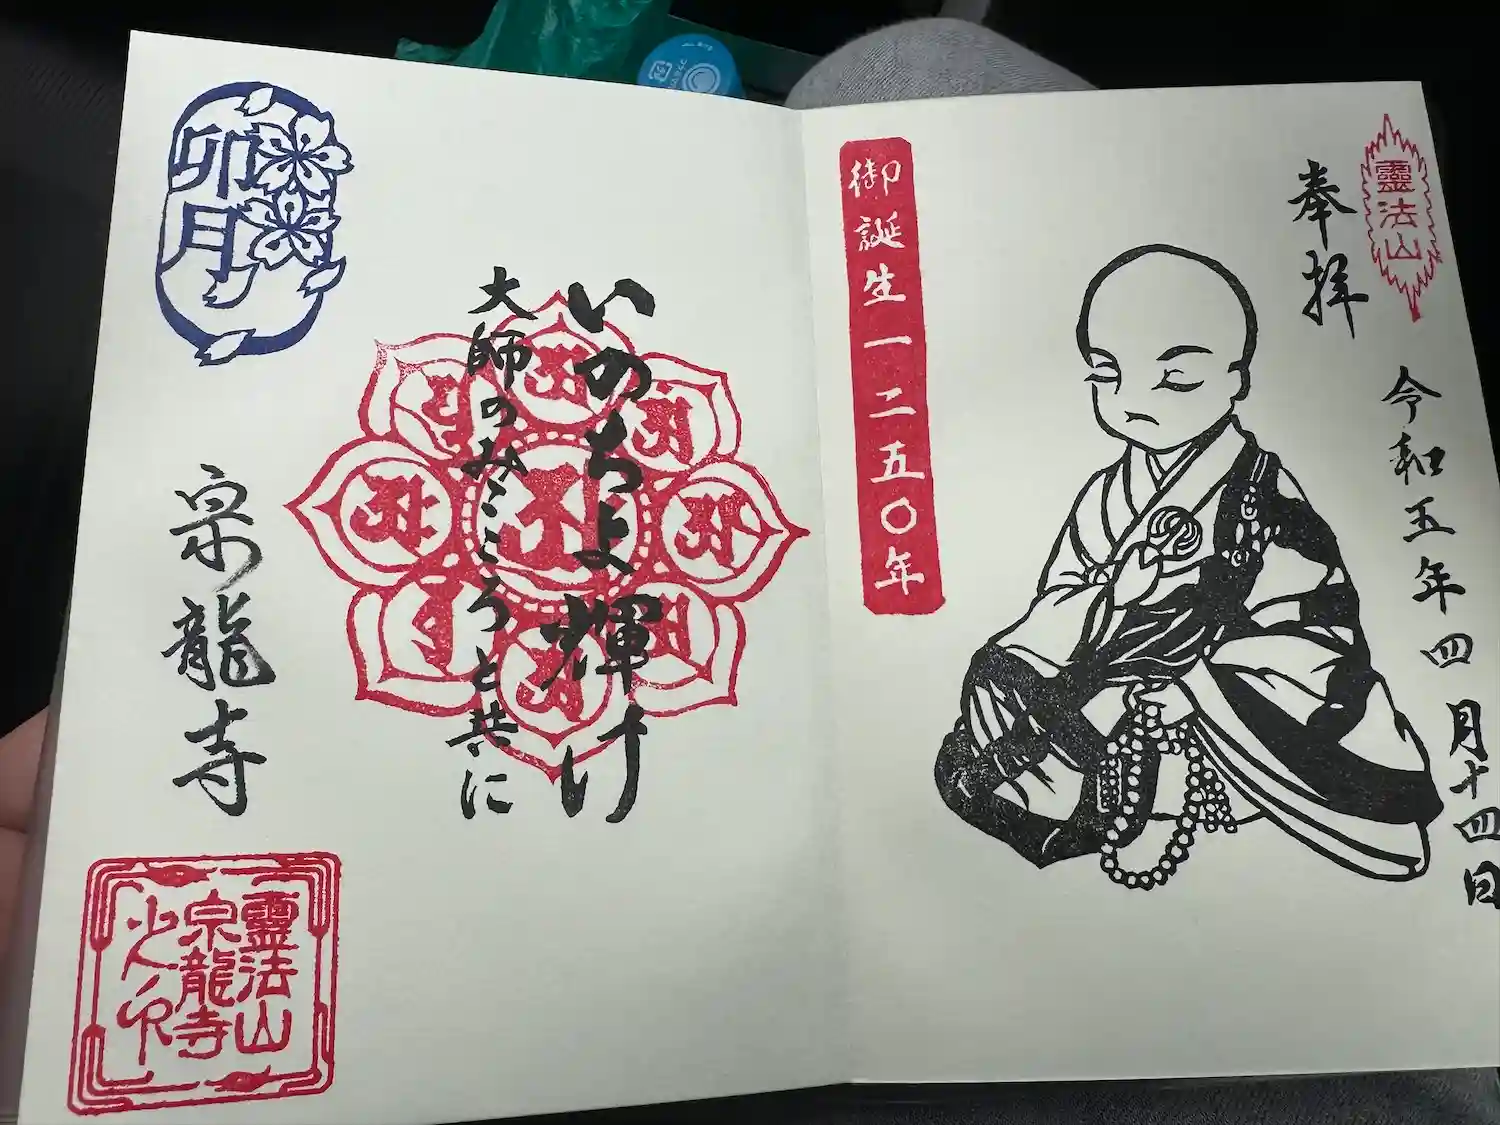 靈法山
奉拝
令和五年四月十四日
御誕生一二五〇年
いのちよ輝け
大師のみこころと共に
卯月
宗龍寺
靈法山
宗龍寺
之印